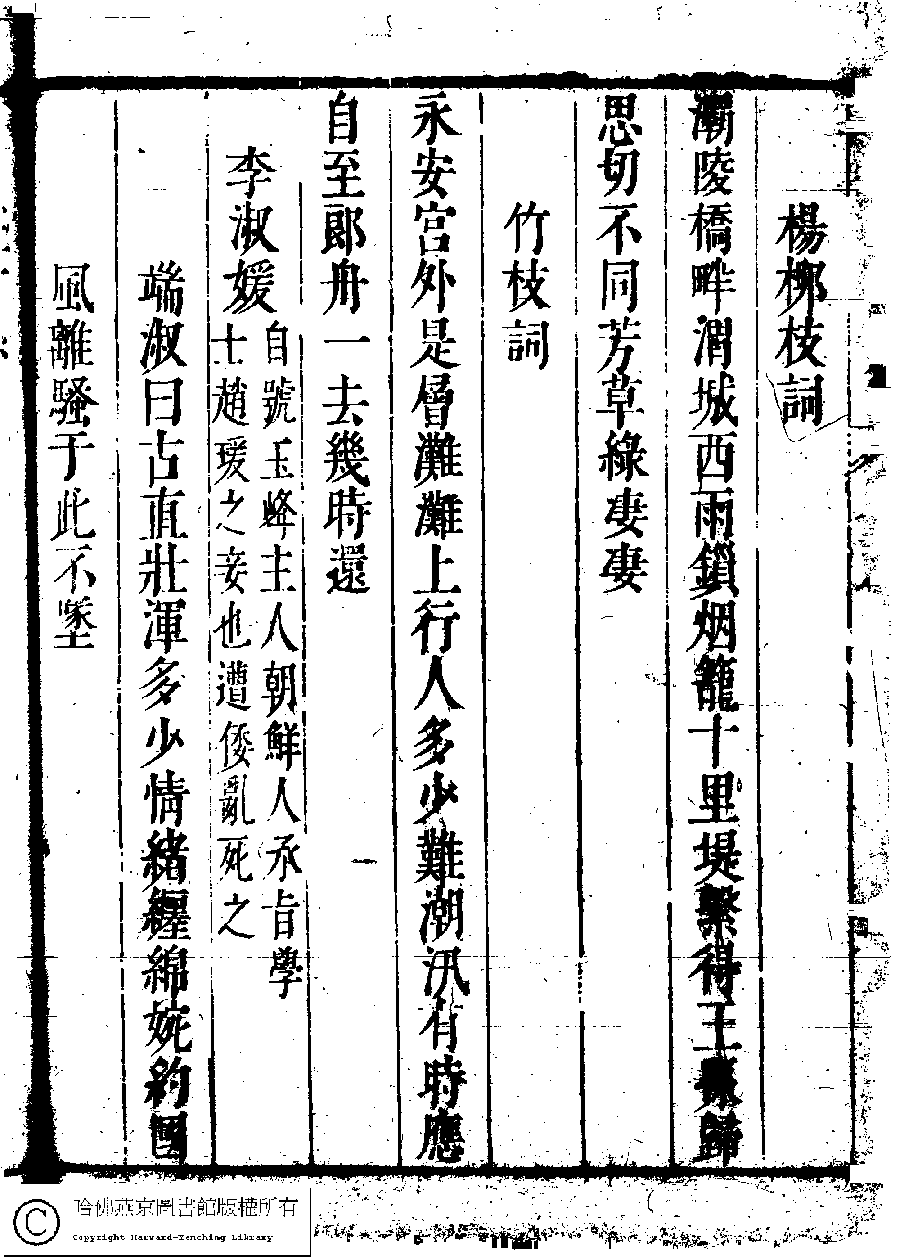 楊柳枝詞
灞陵橋畔渭城西雨鎖烟籠十里堤繫得王孫歸
思切不同芳草綠凄凄
竹枝詞
永安宮外是層灘灘上行人多少難潮汛有時應
自至郎舟一去幾時還
李淑媛
自號玉峰主人朝鮮人承旨學
士趙瑗之妾也遭倭亂死之
端淑曰古直壯渾多少情緒纏綿婉約國
風離騷于此不墜
哈佛燕京圖書館版權所有
Copyright Harvard-Yenching Library